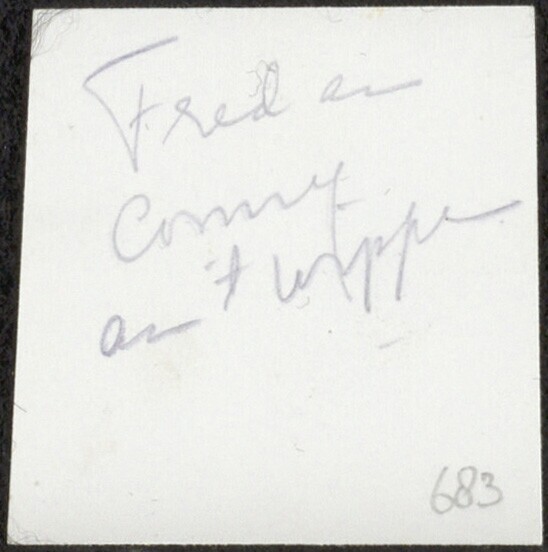 Fred en
Conny
an't wippe
683